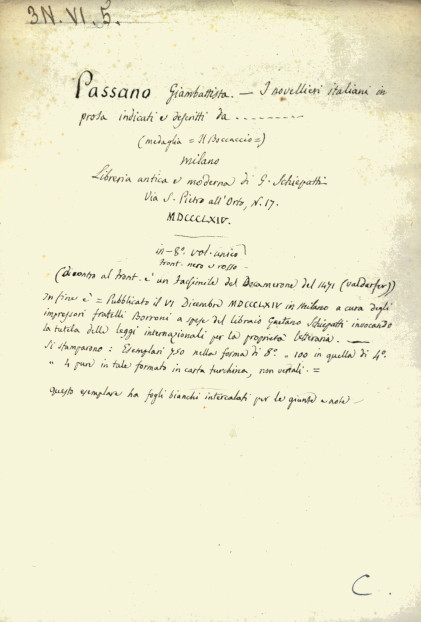 3N.VI.5.
Passano Giambattista. — I novellieri italiani in
prosa indicati e descritti da ---------
(medaglia = Il Boccaccio =)
Milano
Libreria antica e moderna di G. Schiepatti
Via S. Pietro all'Orto, N. 17.
MDCCCLXIV.
in-8º. vol. unico
front. nero e rosso
(Di contro al front. è un Facsimile del Decamerone del 1471 (Valdarfer))
In fine è = Pubblicato il VI Dicembre MDCCCLXIV in Milano a cura degli
impressori fratelli Borroni a spese del libraio Gaetano Schiepatti invocando
la tutela delle leggi internazionali per la proprietà letteraria. —
Si stamparono : Esemplari 750 nella forma di 8º. „ 100 in quella di 4º.
„ 4 pure in tale formato in carta turchina, non venali. =
Questo esemplare ha fogli bianchi intercalati per le giunte e note
C.